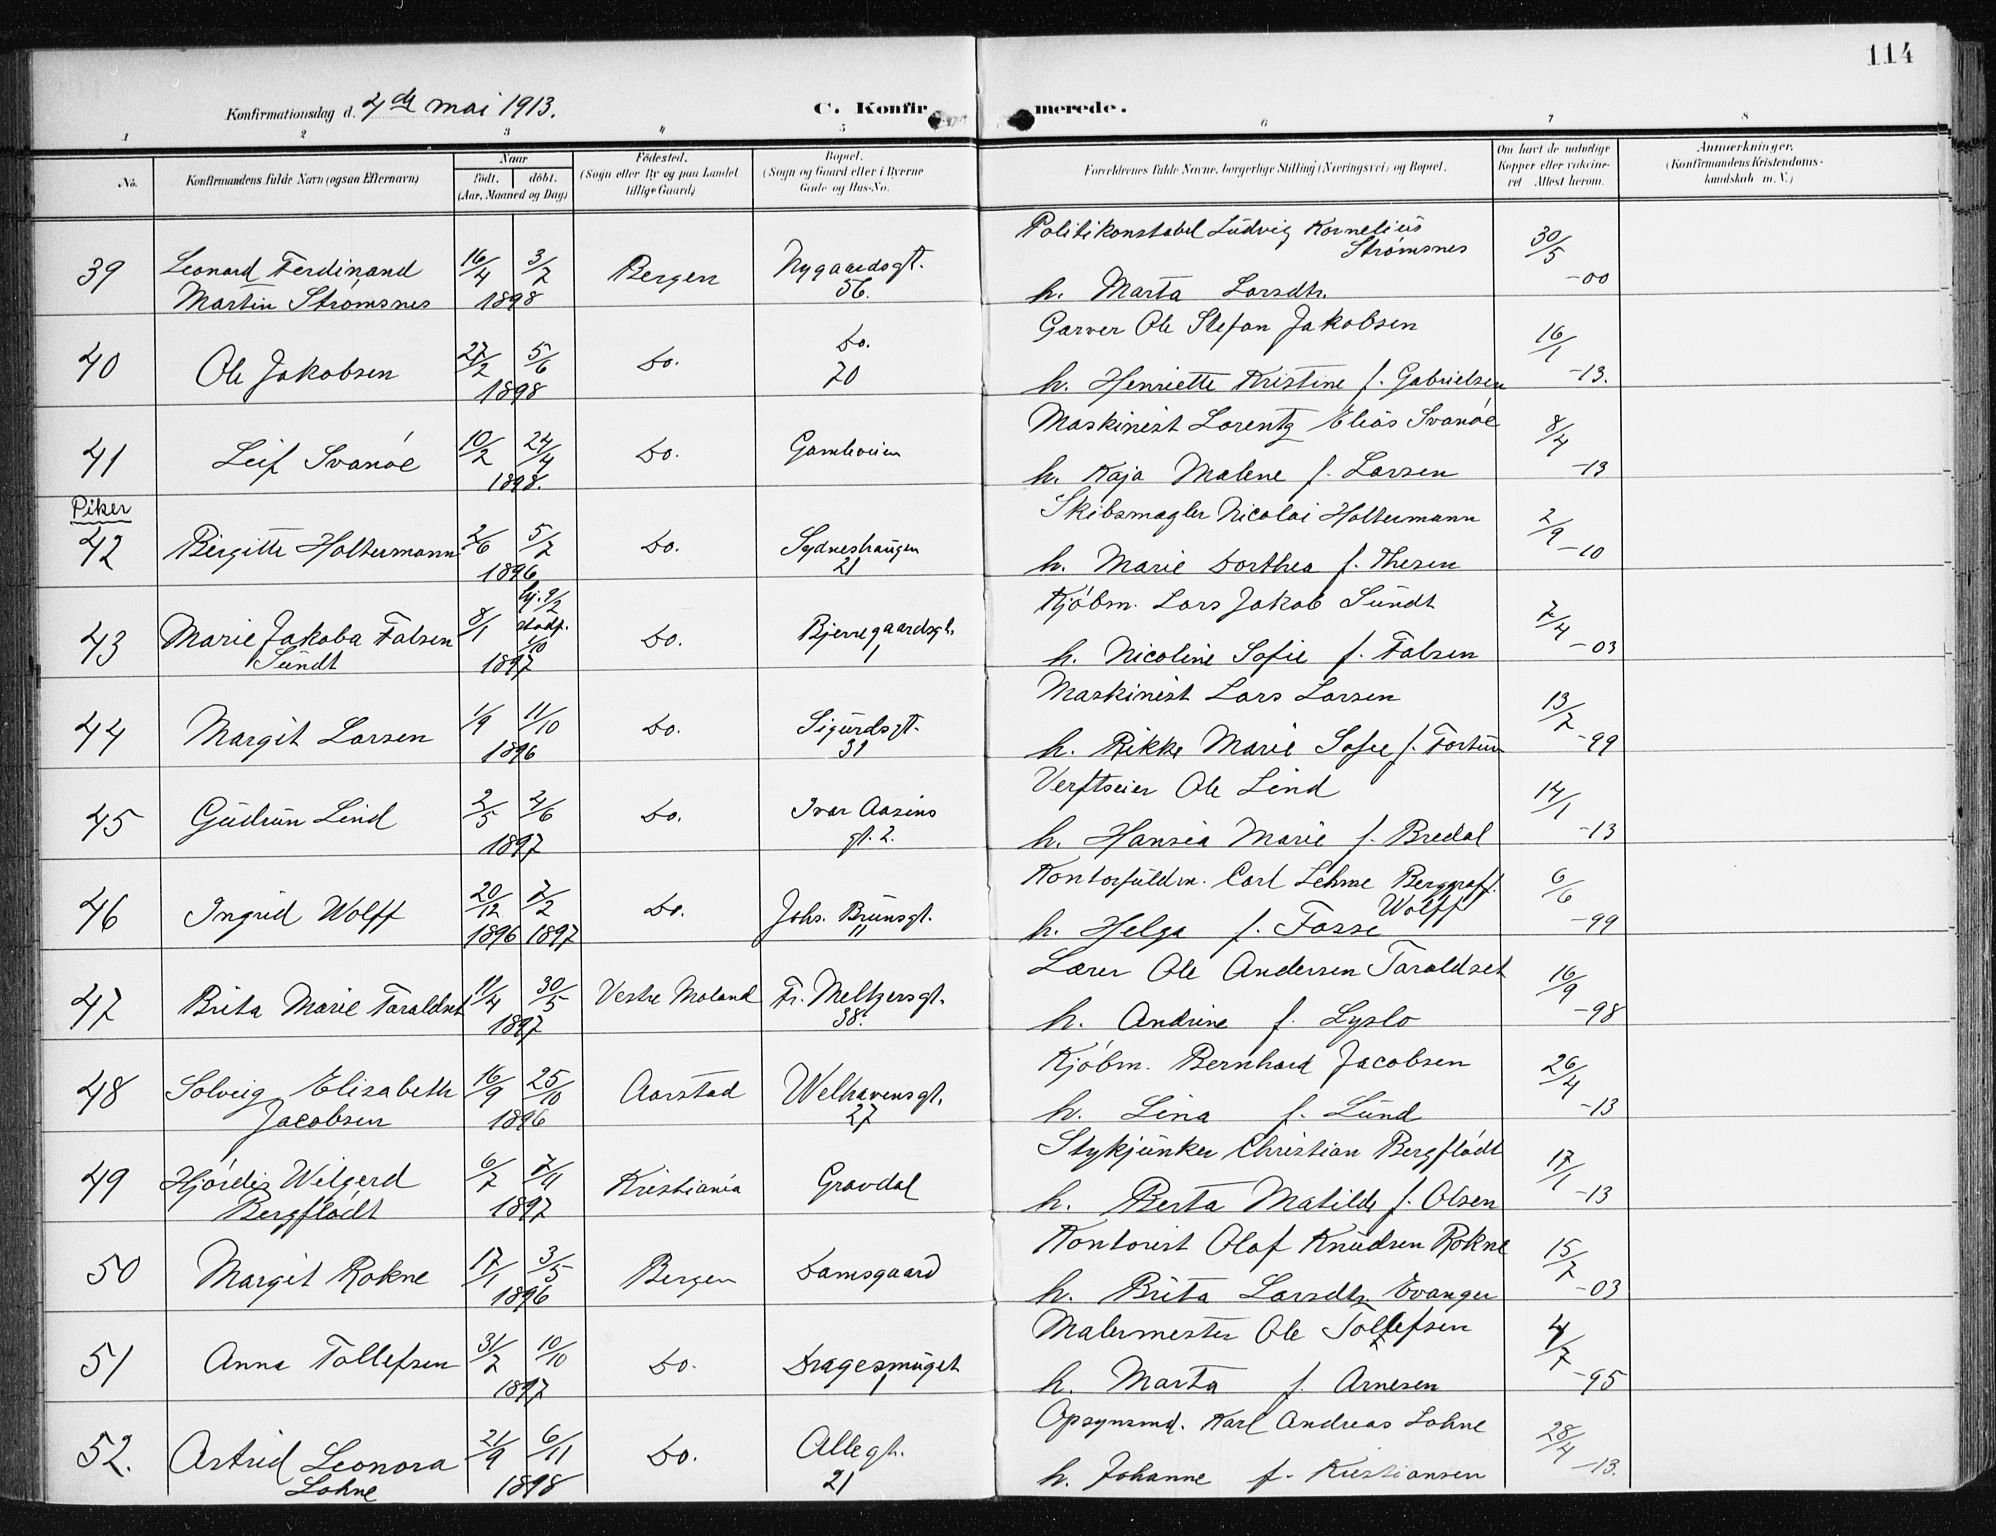 114
Konfirmationsdag d. 4de mai 1913. C. Konfirmerede.
1 2 3 4 5 6 7 8
No. Konfirmandens fulde Navn (ogsaa Efternavn) Naar født. døbt. (Aar, Maaned og Dag) Fødested. (Sogn eller By og paa Landet tillige Gaard) Bopæl. (Sogn og Gaard eller i Byerne Gade og Hus-No. Forældrenes fulde Navne, borgerlige Stilling (Næringsvei) og Bopæl. Om havt de naturlige Kopper eller vaksineret Attest herom. Anmærkninger. (Konfirmandens Kristendomskundskab m. V.)
Politikonstabel Ludvig Kornelius
39 Leonard Ferdinand 16/4 3/7 Bergen Nygaardsgt. Strømsnes 30/5
Martin Strømsnes 1898 56. h. Marta Larsdtr. -00
Garver Ole Stefan Jakobsen
40 Ole Jakobsen 27/2 5/6 Do. Do. 16/1
1898 70 h. Henriette Kristine f. Gabrielsen -13.
Maskinist Lorentz Elias Svanøe
41 Leif Svanøe 10/2 24/4 Do. Gamleveien 8/4
1898. h. Kaja Malene f. Larsen -13
Piker
Skibsmægler Nicolai Holtermann
42 Birgitte Holtermann 2/6 5/7 Do. Sydneshaugen 2/9
1896 21 h. Marie Dorthea f. Thesen -10
hj. 9/2
Kjøbm. Lars Jakob Sundt
43 Marie Jakoba Falsen 8/1 stadf. 1/10 Do. Bjerregaardsgt. 7/4
Sundt 1897 1 h. Nicoline Sofie f. Falsen -03
Maskinist Lars Larsen
44 Margit Larsen 1/9 11/10 Do. Sigurdsgt. 13/7
1896 31 h. Rikke Marie Sofie f. Fortun -99
Verftseier Ole Lind
45 Gudrun Lind 2/5 4/6 Do. Ivar Aasens 14/1
1897 gt. 2. h. Hansea Marie f. Bredal -13
Kontorfuldm. Carl Lehme Berggraff
46 Ingrid Wolff 20/12 7/2 Do. Johs. Brunsgt. Wolff 6/6
1896 1897 11 h. Helga f. Fasse -99
Lærer Ole Andersen Taraldset
47 Brita Marie Taraldset 11/4 30/5 Vestre Moland Fr. Meltzersgt. 16/9
1897 38. h. Andrine f. Lyslo -98
Kjøbm. Bernhard Jacobsen
48 Solveig Elisabeth 16/9 25/10 Aarstad Welhavensgt. 26/4
Jacobsen 1896 27 h. Lina f. Lund -13
Stykjunker Christian Bergflødt
49 Hjørdis Wilgerd 6/7 7/11 Kristiania Gravdal 17/1
Bergflødt 1897 h. Berta Matilde f. Olsen -13
Kontorist Olaf Knudsen Rokne
50 Margit Rokne 17/1 3/5 Bergen Damsgaard 15/7
1896 h. Brita Larsdtr. Evanger -03
Malermester Ole Tollefsen
51 Anna Tollefsen 31/7 10/10 Do. Dragesmuget 4/7
1897 1 h. Marta f. Arnesen -95
Opsynsmd. Karl Andreas Lohne
52. Astrid Leonora 21/9 6/11 Do. Allegt. 28/4
Lohne 1898 21 h. Johanne f. Kristiansen -13.